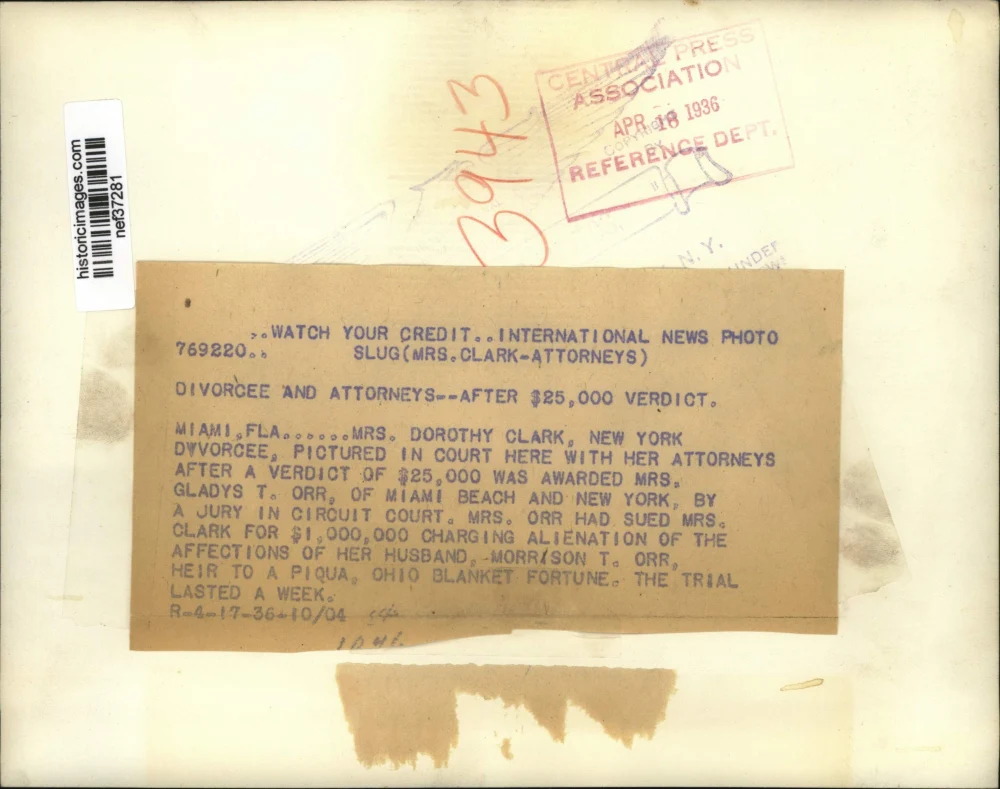 3943
CENTRAL PRESS
ASSOCIATION
APR 18 1936
COPYRIGHT
BY
REFERENCE DEPT.
N.Y.
UNDER
historicimages.com
nef37281
..WATCH YOUR CREDIT..INTERNATIONAL NEWS PHOTO
769220.. SLUG(MRS.CLARK-ATTORNEYS)
DIVORCEE AND ATTORNEYS--AFTER $25,000 VERDICT.
MIAMI,FLA......MRS. DOROTHY CLARK, NEW YORK
DVVORCEE, PICTURED IN COURT HERE WITH HER ATTORNEYS
AFTER A VERDICT OF $25,000 WAS AWARDED MRS.
GLADYS T. ORR, OF MIAMI BEACH AND NEW YORK, BY
A JURY IN CIRCUIT COURT. MRS. ORR HAD SUED MRS.
CLARK FOR $1,000,000 CHARGING ALIENATION OF THE
AFFECTIONS OF HER HUSBAND, MORRISON T. ORR,
HEIR TO A PIQUA, OHIO BLANKET FORTUNE. THE TRIAL
LASTED A WEEK.
R-4-17-36-10/04